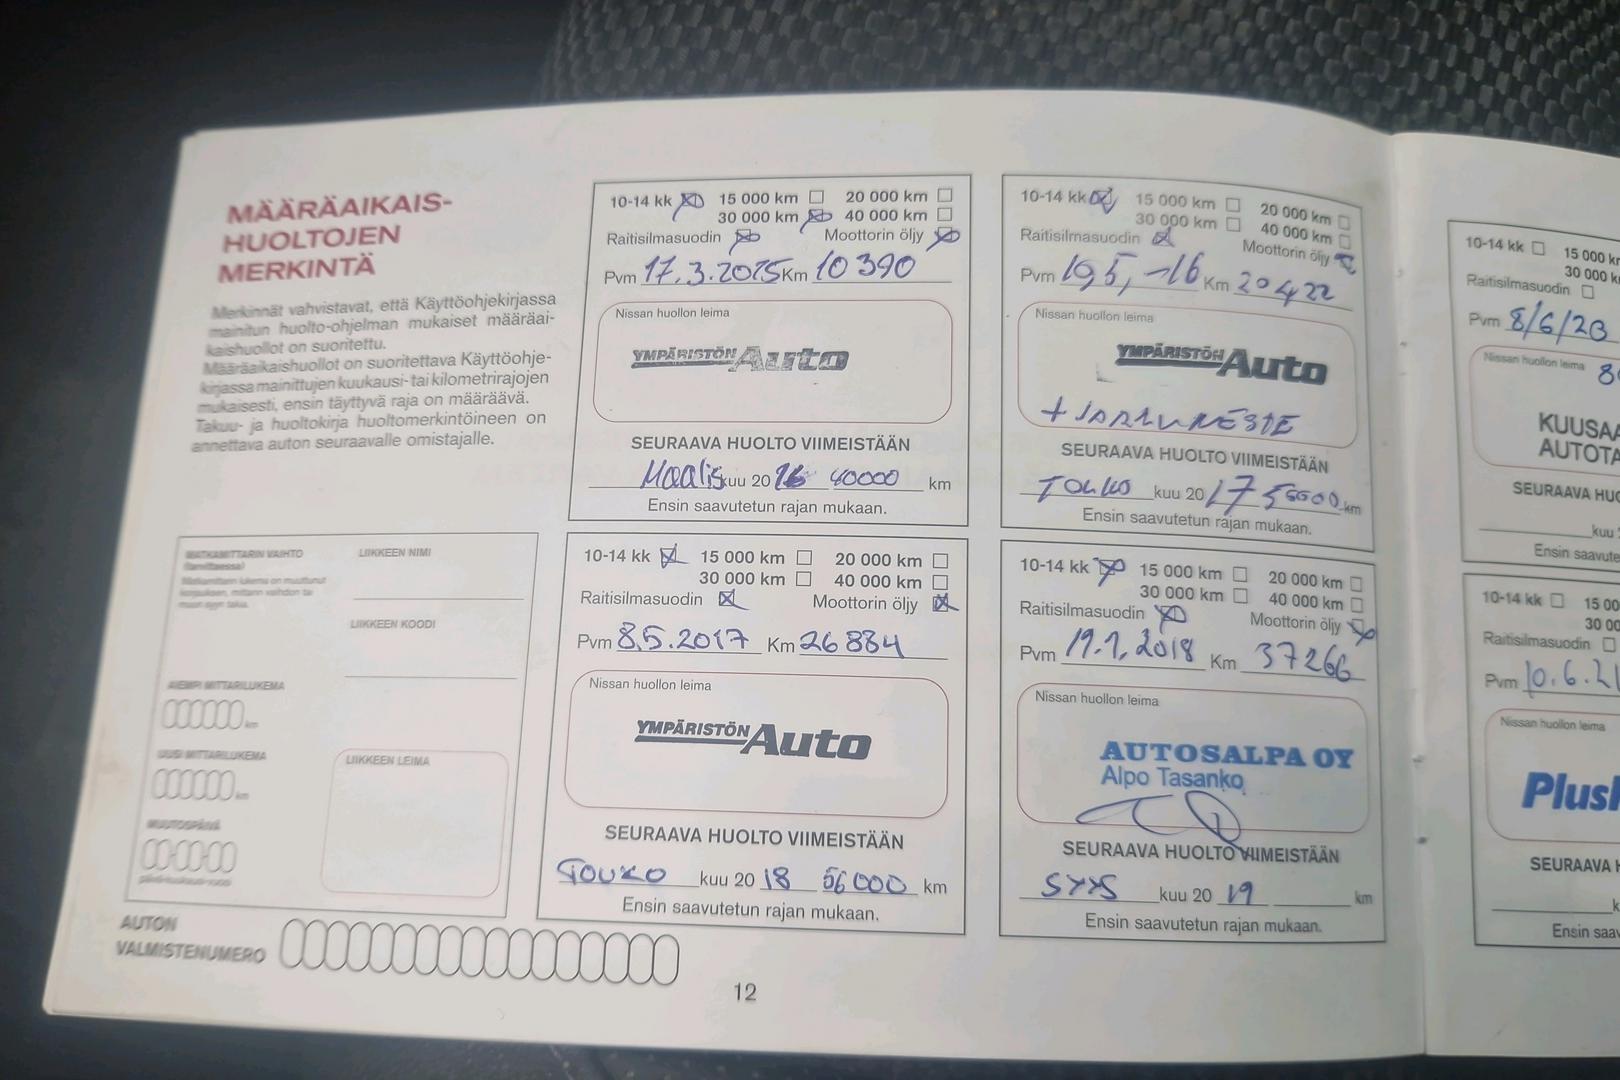 MÄÄRÄAIKAIS-
HUOLTOJEN
MERKINTÄ
Merkinnät vahvistavat, että Käyttöohjekirjassa
mainitun huolto-ohjelman mukaiset määräai-
kaishuollot on suoritettu.
Määräaikaishuollot on suoritettava Käyttöohje-
kirjassa mainittujen kuukausi- tai kilometrirajojen
mukaisesti, ensin täyttyvä raja on määräävä.
Takuu- ja huoltokirja huoltomerkintöineen on
annettava auton seuraavalle omistajalle.
MATKAMITTARIN VAIHTO
(tarvittaessa)
LIIKKEEN NIMI
LIIKKEEN KOODI
AIEMPI MITTARILUKEMA
km
UUSI MITTARILUKEMA
km
MUUTOSPÄIVÄ
LIIKKEEN LEIMA
AUTON
VALMISTENUMERO
10-14 kk 15 000 km 20 000 km
30 000 km 40 000 km
Raitisilmasuodin Moottorin öljy
Pvm 17.3.2015 Km 10390
Nissan huollon leima
YMPÄRISTÖN Auto
SEURAAVA HUOLTO VIIMEISTÄÄN
Maalis kuu 20 16 40000 km
Ensin saavutetun rajan mukaan.
10-14 kk 15 000 km 20 000 km
30 000 km 40 000 km
Raitisilmasuodin Moottorin öljy
Pvm 19,5,-16 Km 20422
Nissan huollon leima
YMPÄRISTÖN Auto
+ JARRUNESTE
SEURAAVA HUOLTO VIIMEISTÄÄN
TOUKO kuu 20 17 km
Ensin saavutetun rajan mukaan.
10-14 kk 15 000 km 20 000 km
30 000 km 40 000 km
Raitisilmasuodin Moottorin öljy
Pvm 8.5.2017 Km 26884
Nissan huollon leima
YMPÄRISTÖN Auto
SEURAAVA HUOLTO VIIMEISTÄÄN
TOUKO kuu 20 18 56000 km
Ensin saavutetun rajan mukaan.
10-14 kk 15 000 km 20 000 km
30 000 km 40 000 km
Raitisilmasuodin Moottorin öljy
Pvm 19.1.2018 Km 37266
Nissan huollon leima
AUTOSALPA OY
Alpo Tasanko
SEURAAVA HUOLTO VIIMEISTÄÄN
SYYS kuu 20 19 km
Ensin saavutetun rajan mukaan.
12
10-14 kk 15 000 k
30 000 k
Raitisilmasuodin
Pvm 8/6/20
Nissan huollon leima
KUUSAA
AUTOTA
SEURAAVA HUO
kuu
Ensin saavute
10-14 kk 15 00
30 00
Raitisilmasuodin
Pvm 10.6.21
Nissan huollon leima
Plus
SEURAAVA
Ensin saa